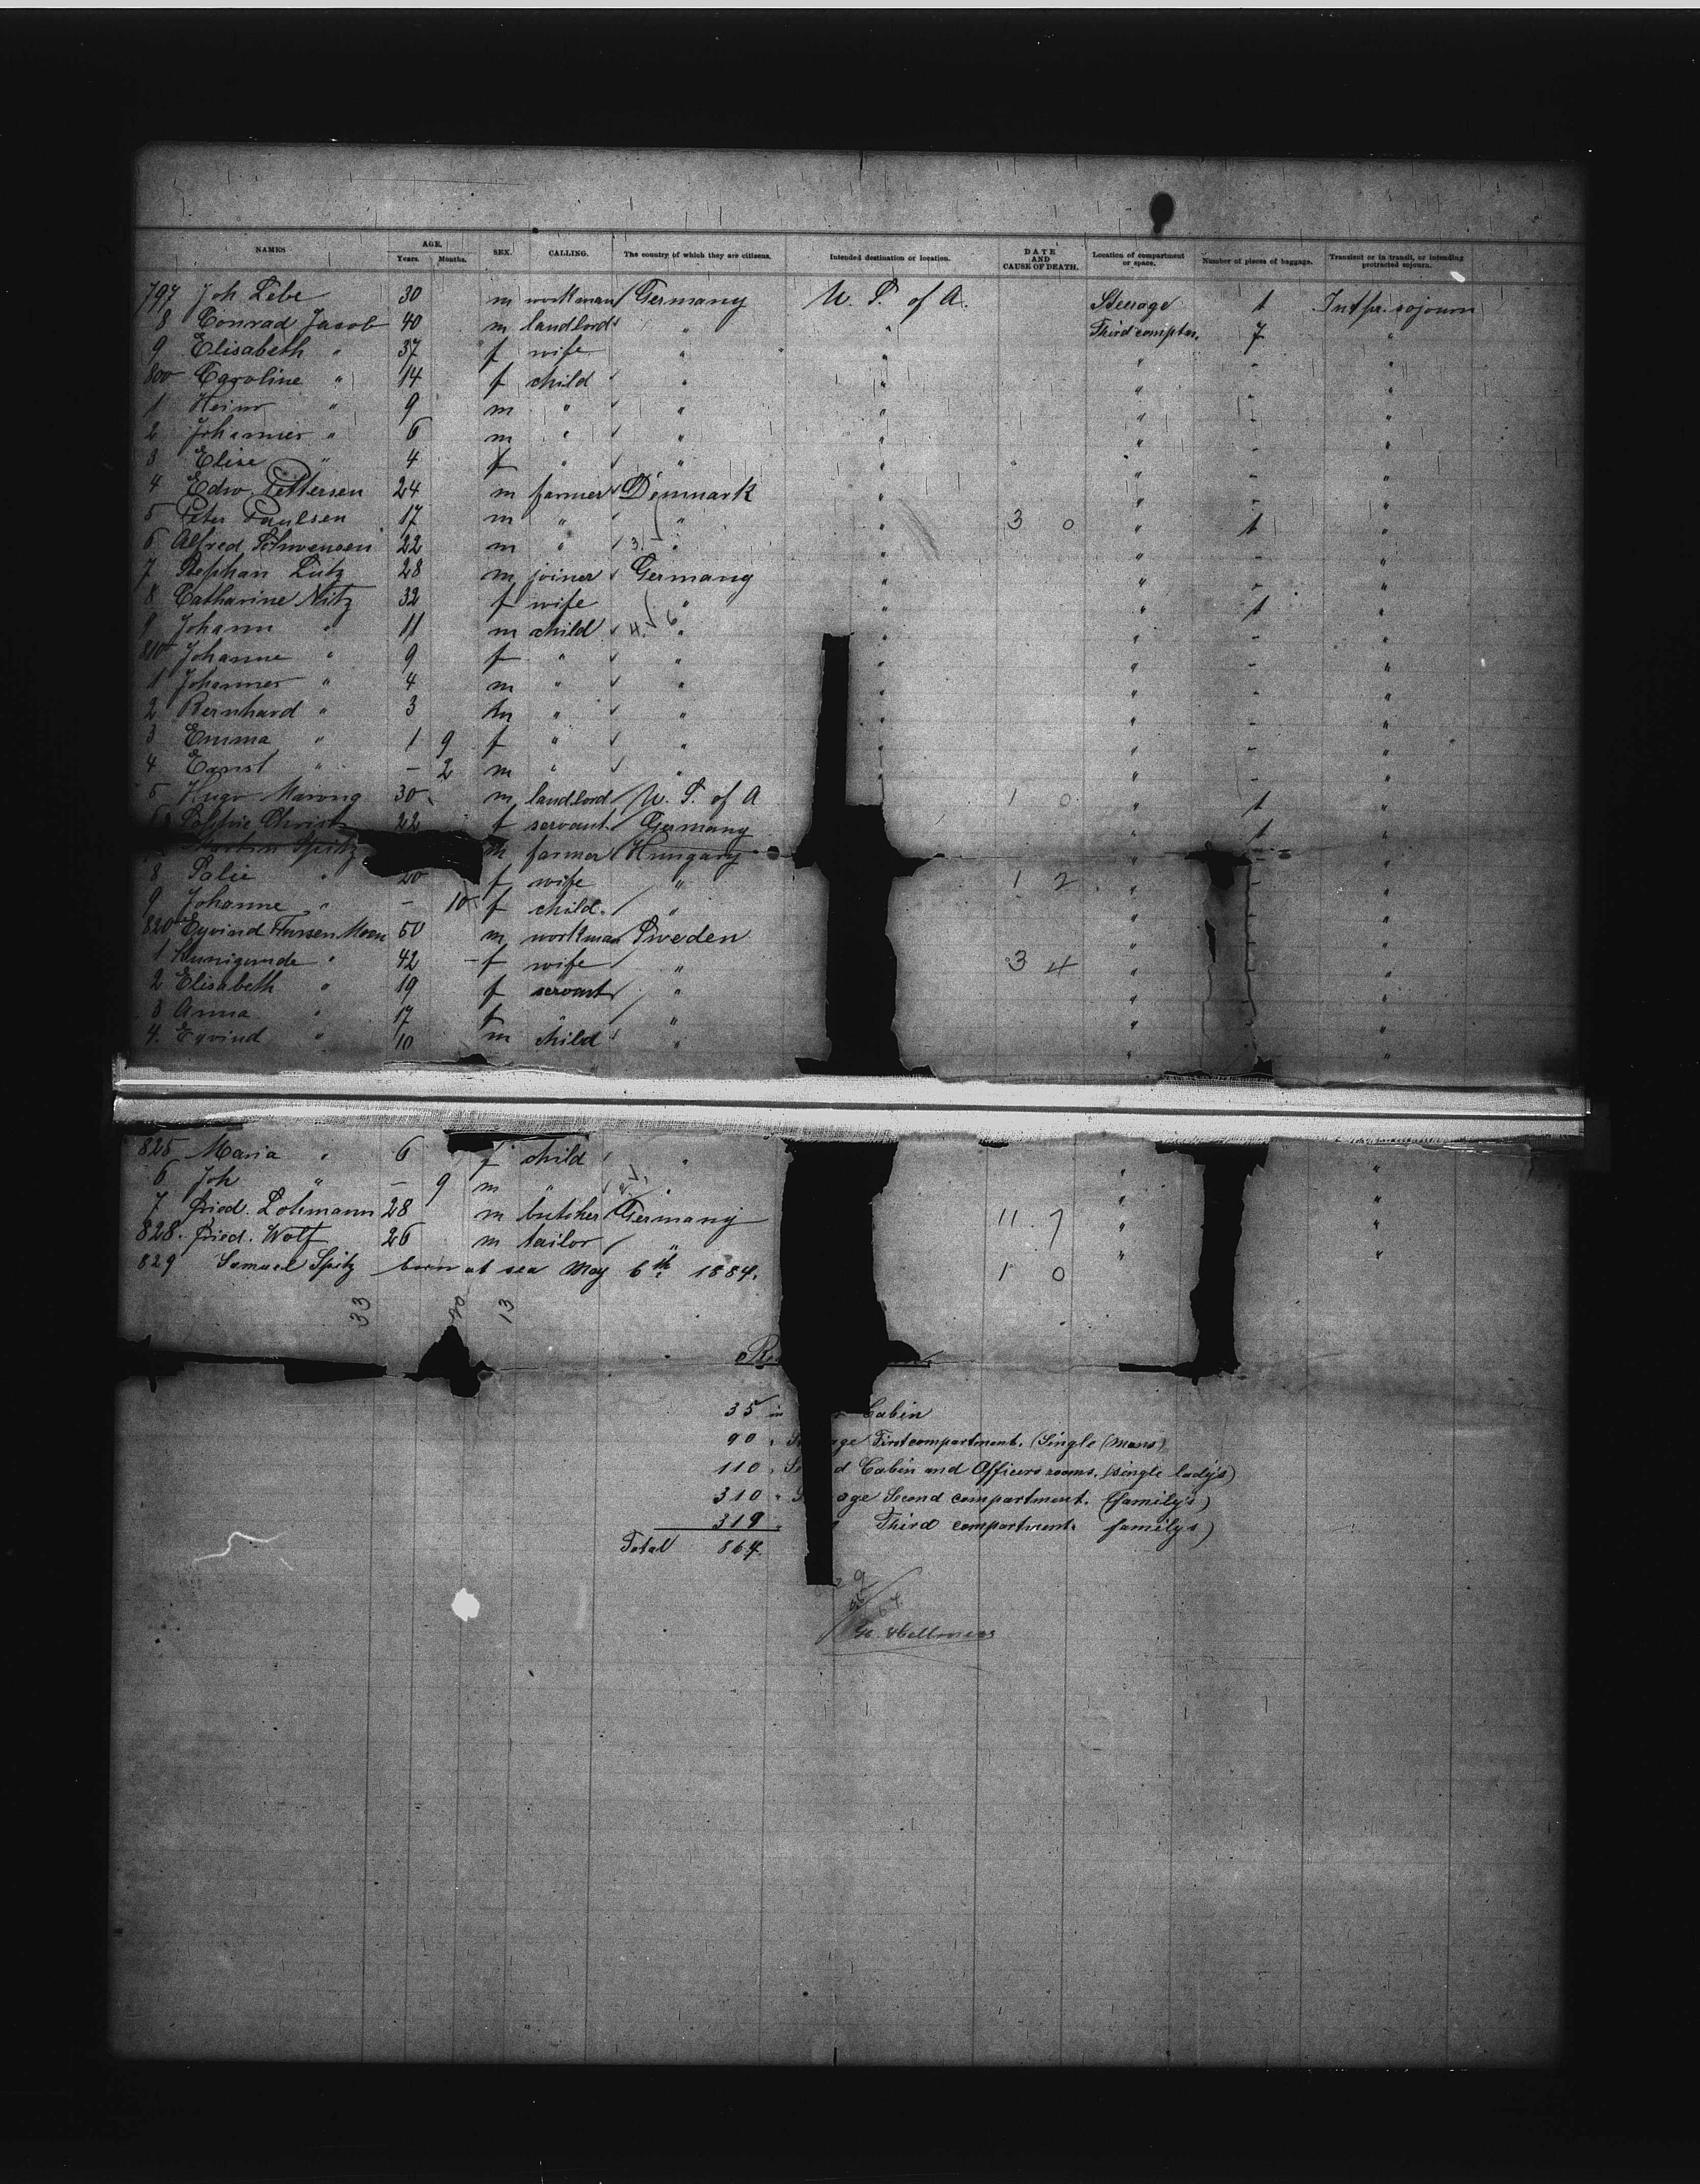 NAMES AGE. Years. Months. SEX. CALLING. The country of which they are citizens. Intended destination or location. DATE AND CAUSE OF DEATH. Location of compartment or space. Number of pieces of baggage. Transient or in transit, or intending protracted sojourn.
797 Joh Libe 30 m workman Germany U. S. of A. Steerage 1 Int. pr. sojourn
8 Conrad Jacob 40 m landlord " " Third comptm. 7 "
9 Elisabeth " 37 f wife " " " - "
800 Caroline " 14 f child " " " - "
1 Heinr " 9 m " " " " - "
2 Johannes " 6 m " " " " - "
3 Elise " 4 f " " " " - "
4 Edw. Pettersen 24 m farmer Denmark " " - "
5 Peter Paulsen 17 m " " " 3 0 " 1 "
6 Alfred 22 m " 3. " " " - "
7 Stephan Lutz 28 m joiner Germany " " - "
8 Catharine Nitz 32 f wife " " " 1 "
9 Johann " 11 m child 4. 6 " " " - "
810 Johanne " 9 f " " " " - "
1 Johannes " 4 m " " " " - "
2 Bernhard " 3 m " " " " - "
3 Emma " 1 9 f " " " " - "
4 Ernst " - 2 m " " " " - "
5 Hugo Marong 30 m landlord U. S. of A 1 0 " 1 "
Sophie Christ 22 f servant Germany " 1 "
Spitz m farmer Hungary " - "
8 Salie " 20 f wife " 1 2 " - "
9 Johanne " - 10 f child " " - "
820 Eyvind Moen 50 m workman Sweden " - "
1 Kunigunde " 42 f wife " 3 4 " - "
2 Elisabeth " 19 f servant " " - "
3 Anna " 17 f " " " - "
4. Eyvind " 10 m child " " "
825 Maria " 6 f child " " "
6 Joh " - 9 m " " " "
7 Fried. Lohmann 28 m butcher Germany 11. 7 " "
828. Fried. Wolf 26 m tailor " " "
829 Samuel Spitz born at sea May 6th 1884. 1 0
33 20 13
35 in Cabin
90 " First compartment. (Single Mans)
110 " Cabin and Officers rooms. (single lady's)
310 " Second compartment. (family's)
319 " Third compartment. family's)
Total 864.